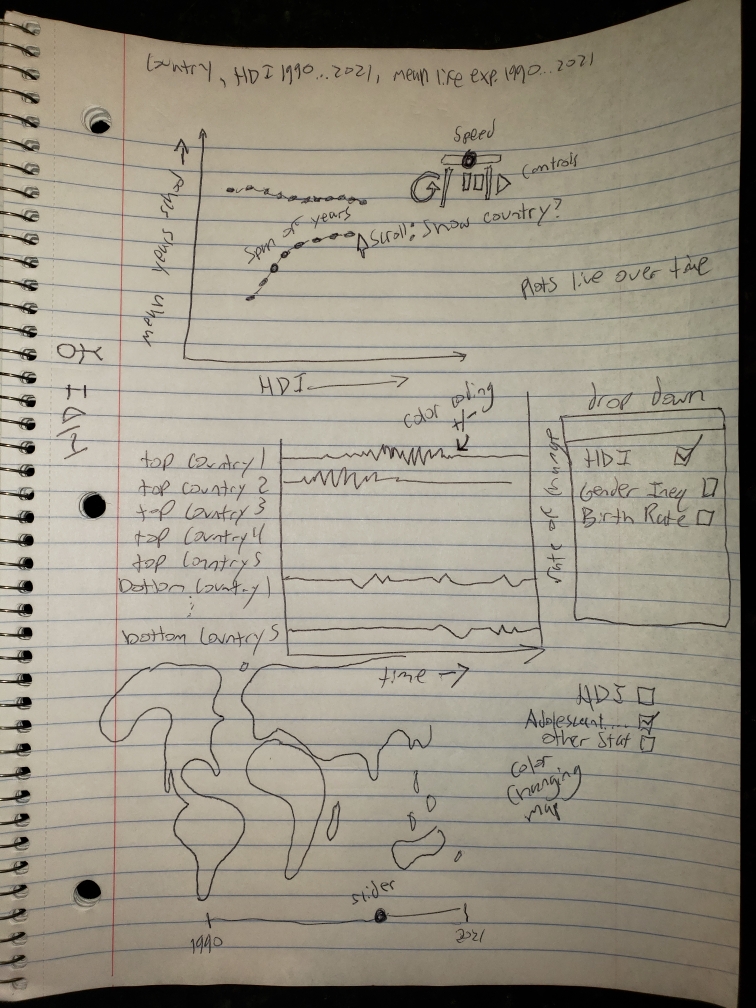 Country, HDI 1990...2021, mean life exp. 1990...2021
Speed
Controls
mean years
Span of years
Scroll: show country?
Plots live over time
HDI
HDI
color coding
+/-
drop down
top country 1
top country 2
top country 3
top country 4
top country 5
bottom country 1
bottom country 5
rate of change
HDI
Gender Ineq
Birth Rate
time
HDI
Adolescent....
other stat
color
changing
map
slider
1990
2021